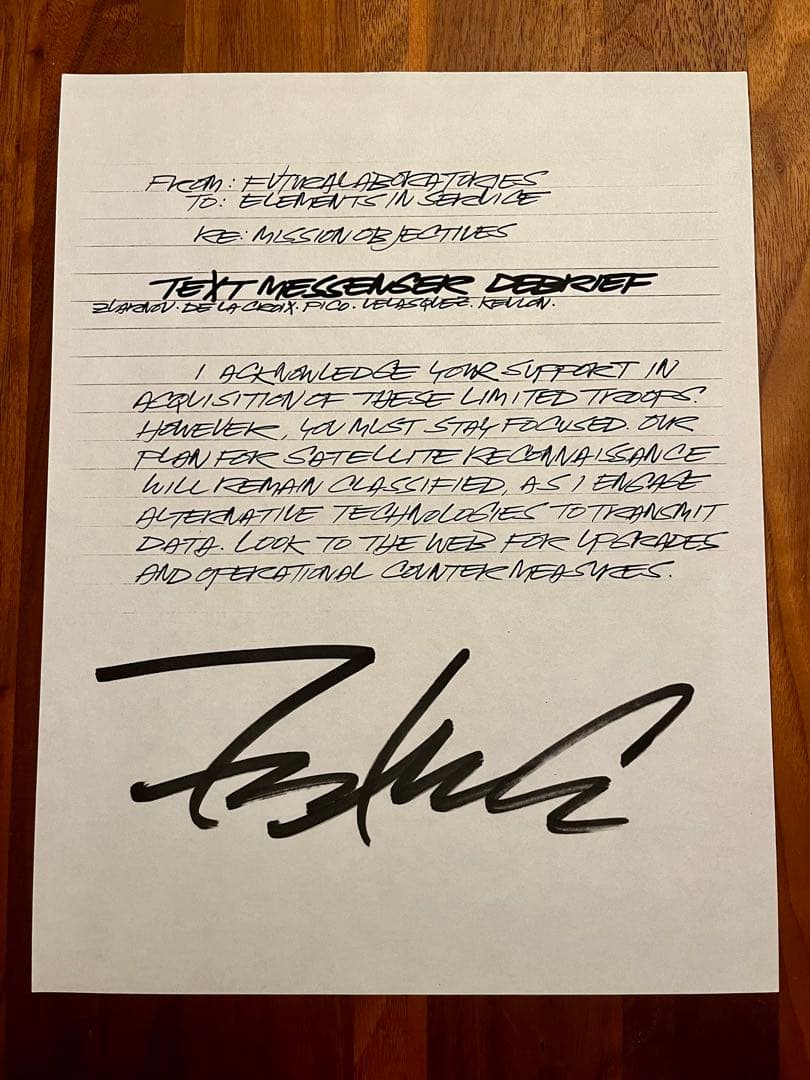 FROM: FUTURALABORATORIES
TO: ELEMENTS IN SERVICE
RE: MISSION OBJECTIVES
TEXT MESSENGER DEBRIEF
ZLARNOV. DE LA CROIX. PICO. VELASQUEZ. KEVLON.
I ACKNOWLEDGE YOUR SUPPORT IN
ACQUISITION OF THESE LIMITED TROOPS.
HOWEVER, YOU MUST STAY FOCUSED. OUR
PLAN FOR SATELLITE RECONNAISSANCE
WILL REMAIN CLASSIFIED, AS I ENGAGE
ALTERNATIVE TECHNOLOGIES TO TRANSMIT
DATA. LOOK TO THE WEB FOR UPGRADES
AND OPERATIONAL COUNTER MEASURES.